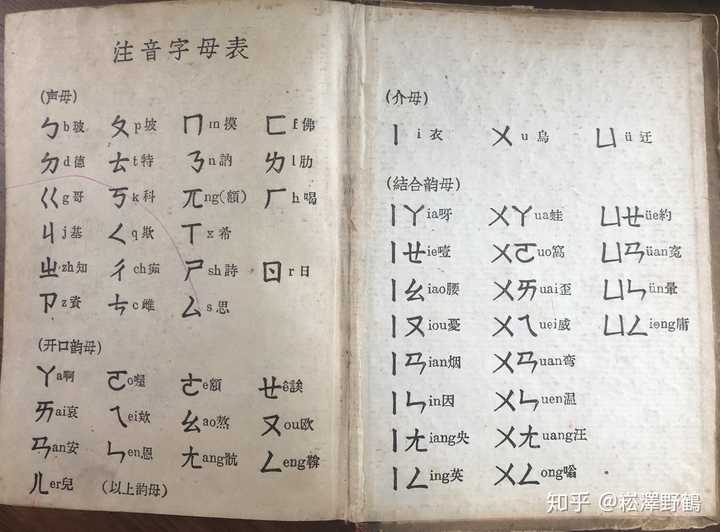 注音字母表
(声母)
ㄅb玻 ㄆp坡 ㄇm摸 ㄈf佛
ㄉd德 ㄊt特 ㄋn訥 ㄌl肋
ㄍg哥 ㄎk科 ㄫng(額) ㄏh喝
ㄐj基 ㄑq欺 ㄒx希
ㄓzh知 ㄔch痴 ㄕsh詩 ㄖr日
ㄗz資 ㄘc雌 ㄙs思
(开口韵母)
ㄚa啊 ㄛo喔 ㄜe額 ㄝê誒
ㄞai哀 ㄟei欸 ㄠao熬 ㄡou欧
ㄢan安 ㄣen恩 ㄤang骯 ㄥeng鞥
ㄦer兒 (以上韵母)
(介母)
ㄧi衣 ㄨu烏 ㄩü迂
(結合韵母)
ㄧㄚia呀 ㄨㄚua蛙 ㄩㄝüe約
ㄧㄝie噎 ㄨㄛuo窩 ㄩㄢüan冤
ㄧㄠiao腰 ㄨㄞuai歪 ㄩㄣün暈
ㄧㄡiou憂 ㄨㄟuei威 ㄩㄥiong庸
ㄧㄢian烟 ㄨㄢuan弯
ㄧㄣin因 ㄨㄣuen温
ㄧㄤiang央 ㄨㄤuang汪
ㄧㄥing英 ㄨㄥong嗡
知乎 @崧澤野鶴